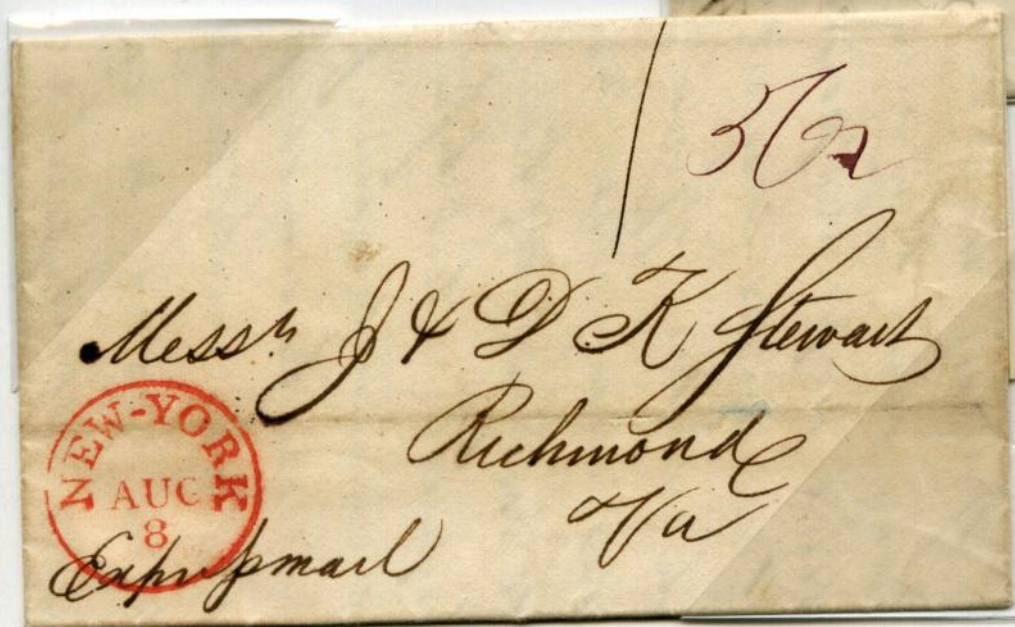 Mess.rs J & D K Stewart
Richmond
Va
NEW-YORK
AUG
8
Express mail